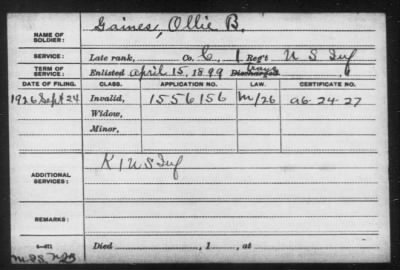 NAME OF SOLDIER: Gaines, Ollie B.
SERVICE: Late rank, Co. C, 1 Reg't U S Inf
TERM OF SERVICE: Enlisted April 15, 1899 Discharged
DATE OF FILING. CLASS. APPLICATION NO. LAW. CERTIFICATE NO.
1926 Sept 24 Invalid, 1556156 M/26 a6-24-27
Widow,
Minor,
ADDITIONAL SERVICES: K 1 U S Inf
REMARKS:
3—671
Died , 1 , at